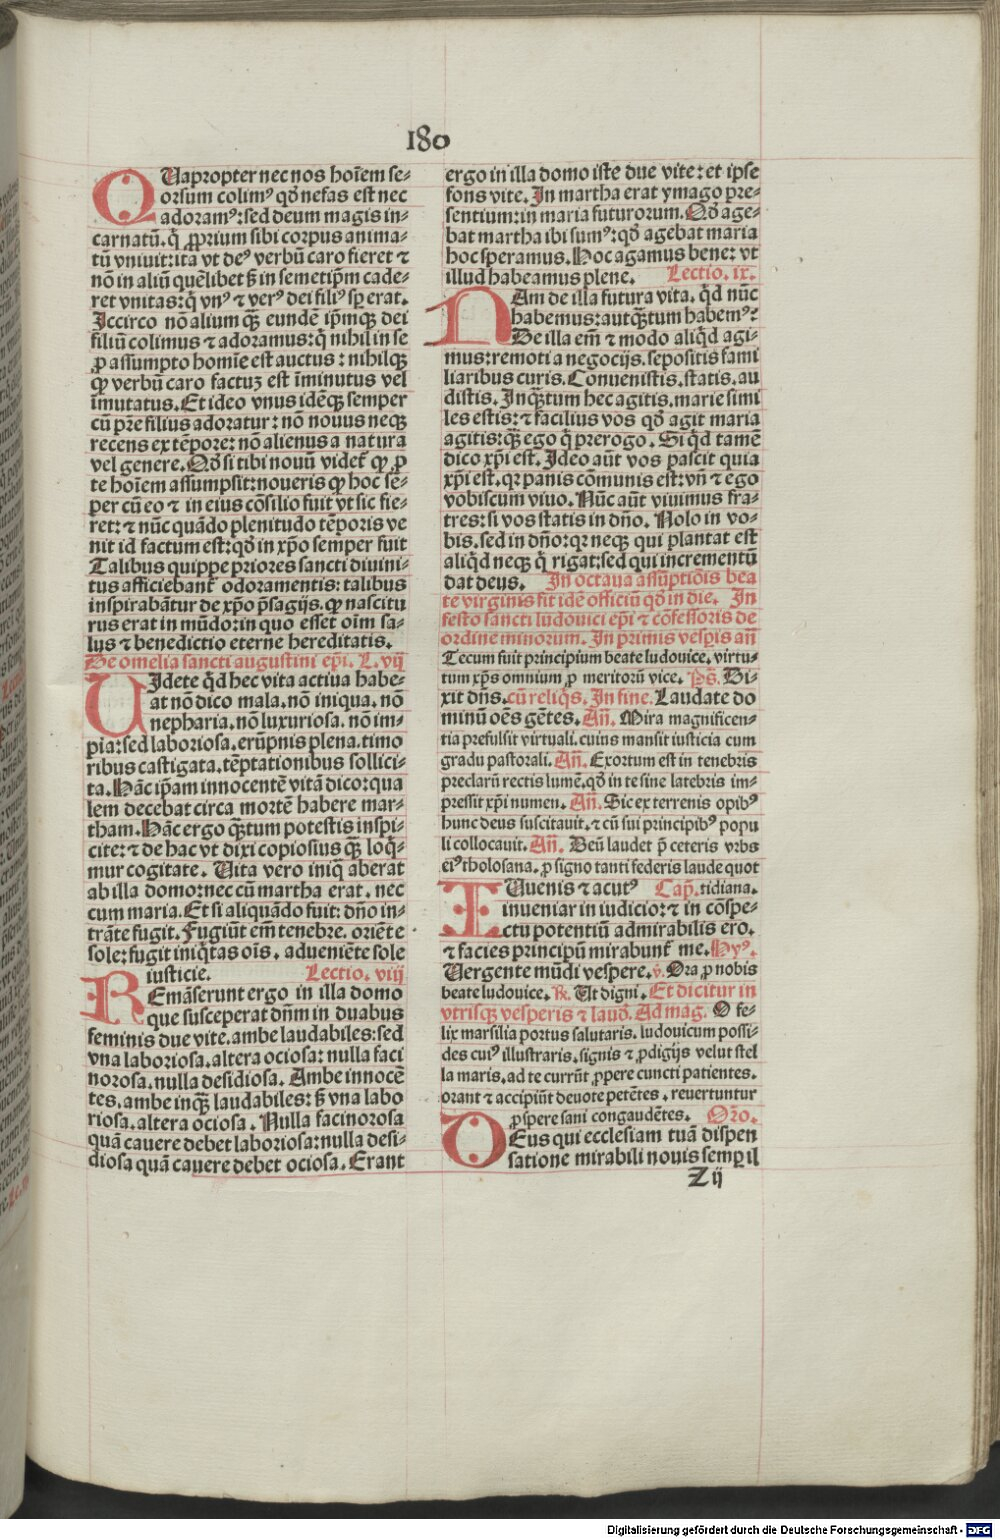 180
QUapropter nec nos hoīem se-
orsum colim⁹ qd̄ nefas est nec
adoram⁹: sed deum magis in-
carnatū. q̇ ꝓprium sibi corpus anima-
tū vniuit: ita vt de⁹ verbū caro fieret ⁊
nō in aliū quēlibet sꝫ in semetip̄m cade-
ret vnitas: q̇ vn⁹ ⁊ ver⁹ dei fili⁹ sp̄ erat.
Iccirco nō alium qꝫ̄ eundē ip̄mqꝫ dei
filiū colimus ⁊ adoramus: q̇ nihil in se
ꝓ assumpto homīe est auctus: nihilqꝫ
ꝙ verbū caro factuꝫ est īminutus vel
īmutatus. Et ideo vnus idēqꝫ semper
cū pr̄e filius adoratur: nō nouus neqꝫ
recens ex tēpore: nō alienus a natura
vel genere. Qd̄ si tibi nouū videt̄ ꝙ ꝓ
te hoīem assumpsit: noueris ꝙ hoc se-
per cū eo ⁊ in eius cōsilio fuit vt sic fie-
ret: ⁊ nūc quādo plenitudo tēporis ve
nit id factum est: qd̄ in xp̄o semper fuit
Talibus quippe priores sancti diuini-
tus afficiebant̄ odoramentis: talibus
inspirabāntur de xp̄o p̄sagijs. ꝙ nascitu
rus erat in mūdo: in quo esset oīm sa-
lus ⁊ benedictio eterne hereditatis.
De omelia sancti augustini ep̄i. L. vij
UIdete q̇d hec vita actiua habe-
at nō dico mala. nō iniqua. nō
nepharia. nō luxuriosa. nō im-
pia: sed laboriosa. erūpnis plena. timo
ribus castigata. tēptationibus sollici-
ta. Hāc ip̄am innocentē vitā dico: qua
lem decebat circa mortē habere mar-
tham. Hāc ergo qꝫ̄tum potestis inspi-
cite: ⁊ de hac vt dixi copiosius qꝫ̄ loq̇-
mur cogitate. Uita vero iniq̄ aberat
ab illa domo: nec cū martha erat. nec
cum maria. Et si aliquādo fuit: dn̄o in-
trāte fugit. Fugiūt em̄ tenebre. oriēte
sole: fugit iniq̇tas oīs. adueniēte sole
iusticie. Lectio. viij
REmāserunt ergo in illa domo
que susceperat dn̄m in duabus
feminis due vite. ambe laudabiles: sed
vna laboriosa. altera ociosa: nulla faci
norosa. nulla desidiosa. Ambe innocē
tes. ambe inqꝫ̄ laudabiles: sꝫ vna labo
riosa. altera ociosa. Nulla facinorosa
quā cauere debet laboriosa: nulla desi-
diosa quā cauere debet ociosa. Erant
ergo in illa domo iste due vite: et ipse
fons vite. In martha erat ymago pre-
sentium: in maria futurorum. Qd̄ age-
bat martha ibi sum⁹: qd̄ agebat maria
hoc speramus. Hoc agamus bene: vt
illud habeamus plene. Lectio. ix.
NAm de illa futura vita. q̇d nūc
habemus: aut qꝫ̄tum habem⁹?
De illa em̄ ⁊ modo aliq̇d agi-
mus: remoti a negocijs. sepositis fami
liaribus curis. Conuenistis. statis. au
distis. Inqꝫ̄tum hec agitis. marie simi
les estis: ⁊ facilius vos qd̄ agit maria
agitis: qꝫ̄ ego q̇ prerogo. Si q̇d tamē
dico xp̄i est. Ideo aūt vos pascit quia
xp̄i est. qr panis cōmunis est: vn̄ ⁊ ego
vobiscum viuo. Nūc aūt viuimus fra-
tres: si vos statis in dn̄o. Nolo in vo-
bis. sed in dn̄o: qr neqꝫ qui plantat est
aliq̇d neqꝫ q̇ rigat: sed qui incrementū
dat deus. In octaua assūptiōis bea
te virginis fit idē officiū qd̄ in die. In
festo sancti ludouici ep̄i ⁊ cōfessoris de
ordine minorum. In primis vesp̄is an̄
Tecum fuit principium beate ludouice. virtu-
tum xp̄s omnium ꝓ meritorū vice. Ps̄. Di-
xit dn̄s. cū reliq̇s. In fine. Laudate do
minū oēs gētes. An̄. Mira magnificen-
tia prefulsit virtuali. cuius mansit iusticia cum
gradu pastorali. An̄. Exortum est in tenebris
preclarū rectis lumē. qd̄ in te sine latebris im-
pressit xp̄i numen. An̄. Sic ex terrenis opib⁹
hunc deus suscitauit. ⁊ cū sui principib⁹ popu
li collocauit. An̄. Deū laudet p̄ ceteris vrbs
ei⁹ tholosana. ꝓ signo tanti federis laude quot
IUuenis ⁊ acut⁹ Cap̄. tidiana.
inueniar in iudicio: ⁊ in cōspe-
ctu potentiū admirabilis ero.
⁊ facies principū mirabunt̄ me. Hy⁹.
Uergente mūdi vespere. v̇. Ora ꝓ nobis
beate ludouice. ℟. Ut digni. Et dicitur in
vtrisqꝫ vesperis ⁊ laud̄. Ad mag. O fe-
lix marsilia portus salutaris. ludouicum possi-
des cui⁹ illustraris. signis ⁊ ꝓdigijs velut stel
la maris. ad te currūt ꝓpere cuncti patientes.
orant ⁊ accipiūt deuote petētes. reuertuntur
ꝓspere sani congaudētes. Or̄o.
DEus qui ecclesiam tuā dispen
satione mirabili nouis semꝑ il
Z ij
Digitalisierung gefördert durch die Deutsche Forschungsgemeinschaft - DFG